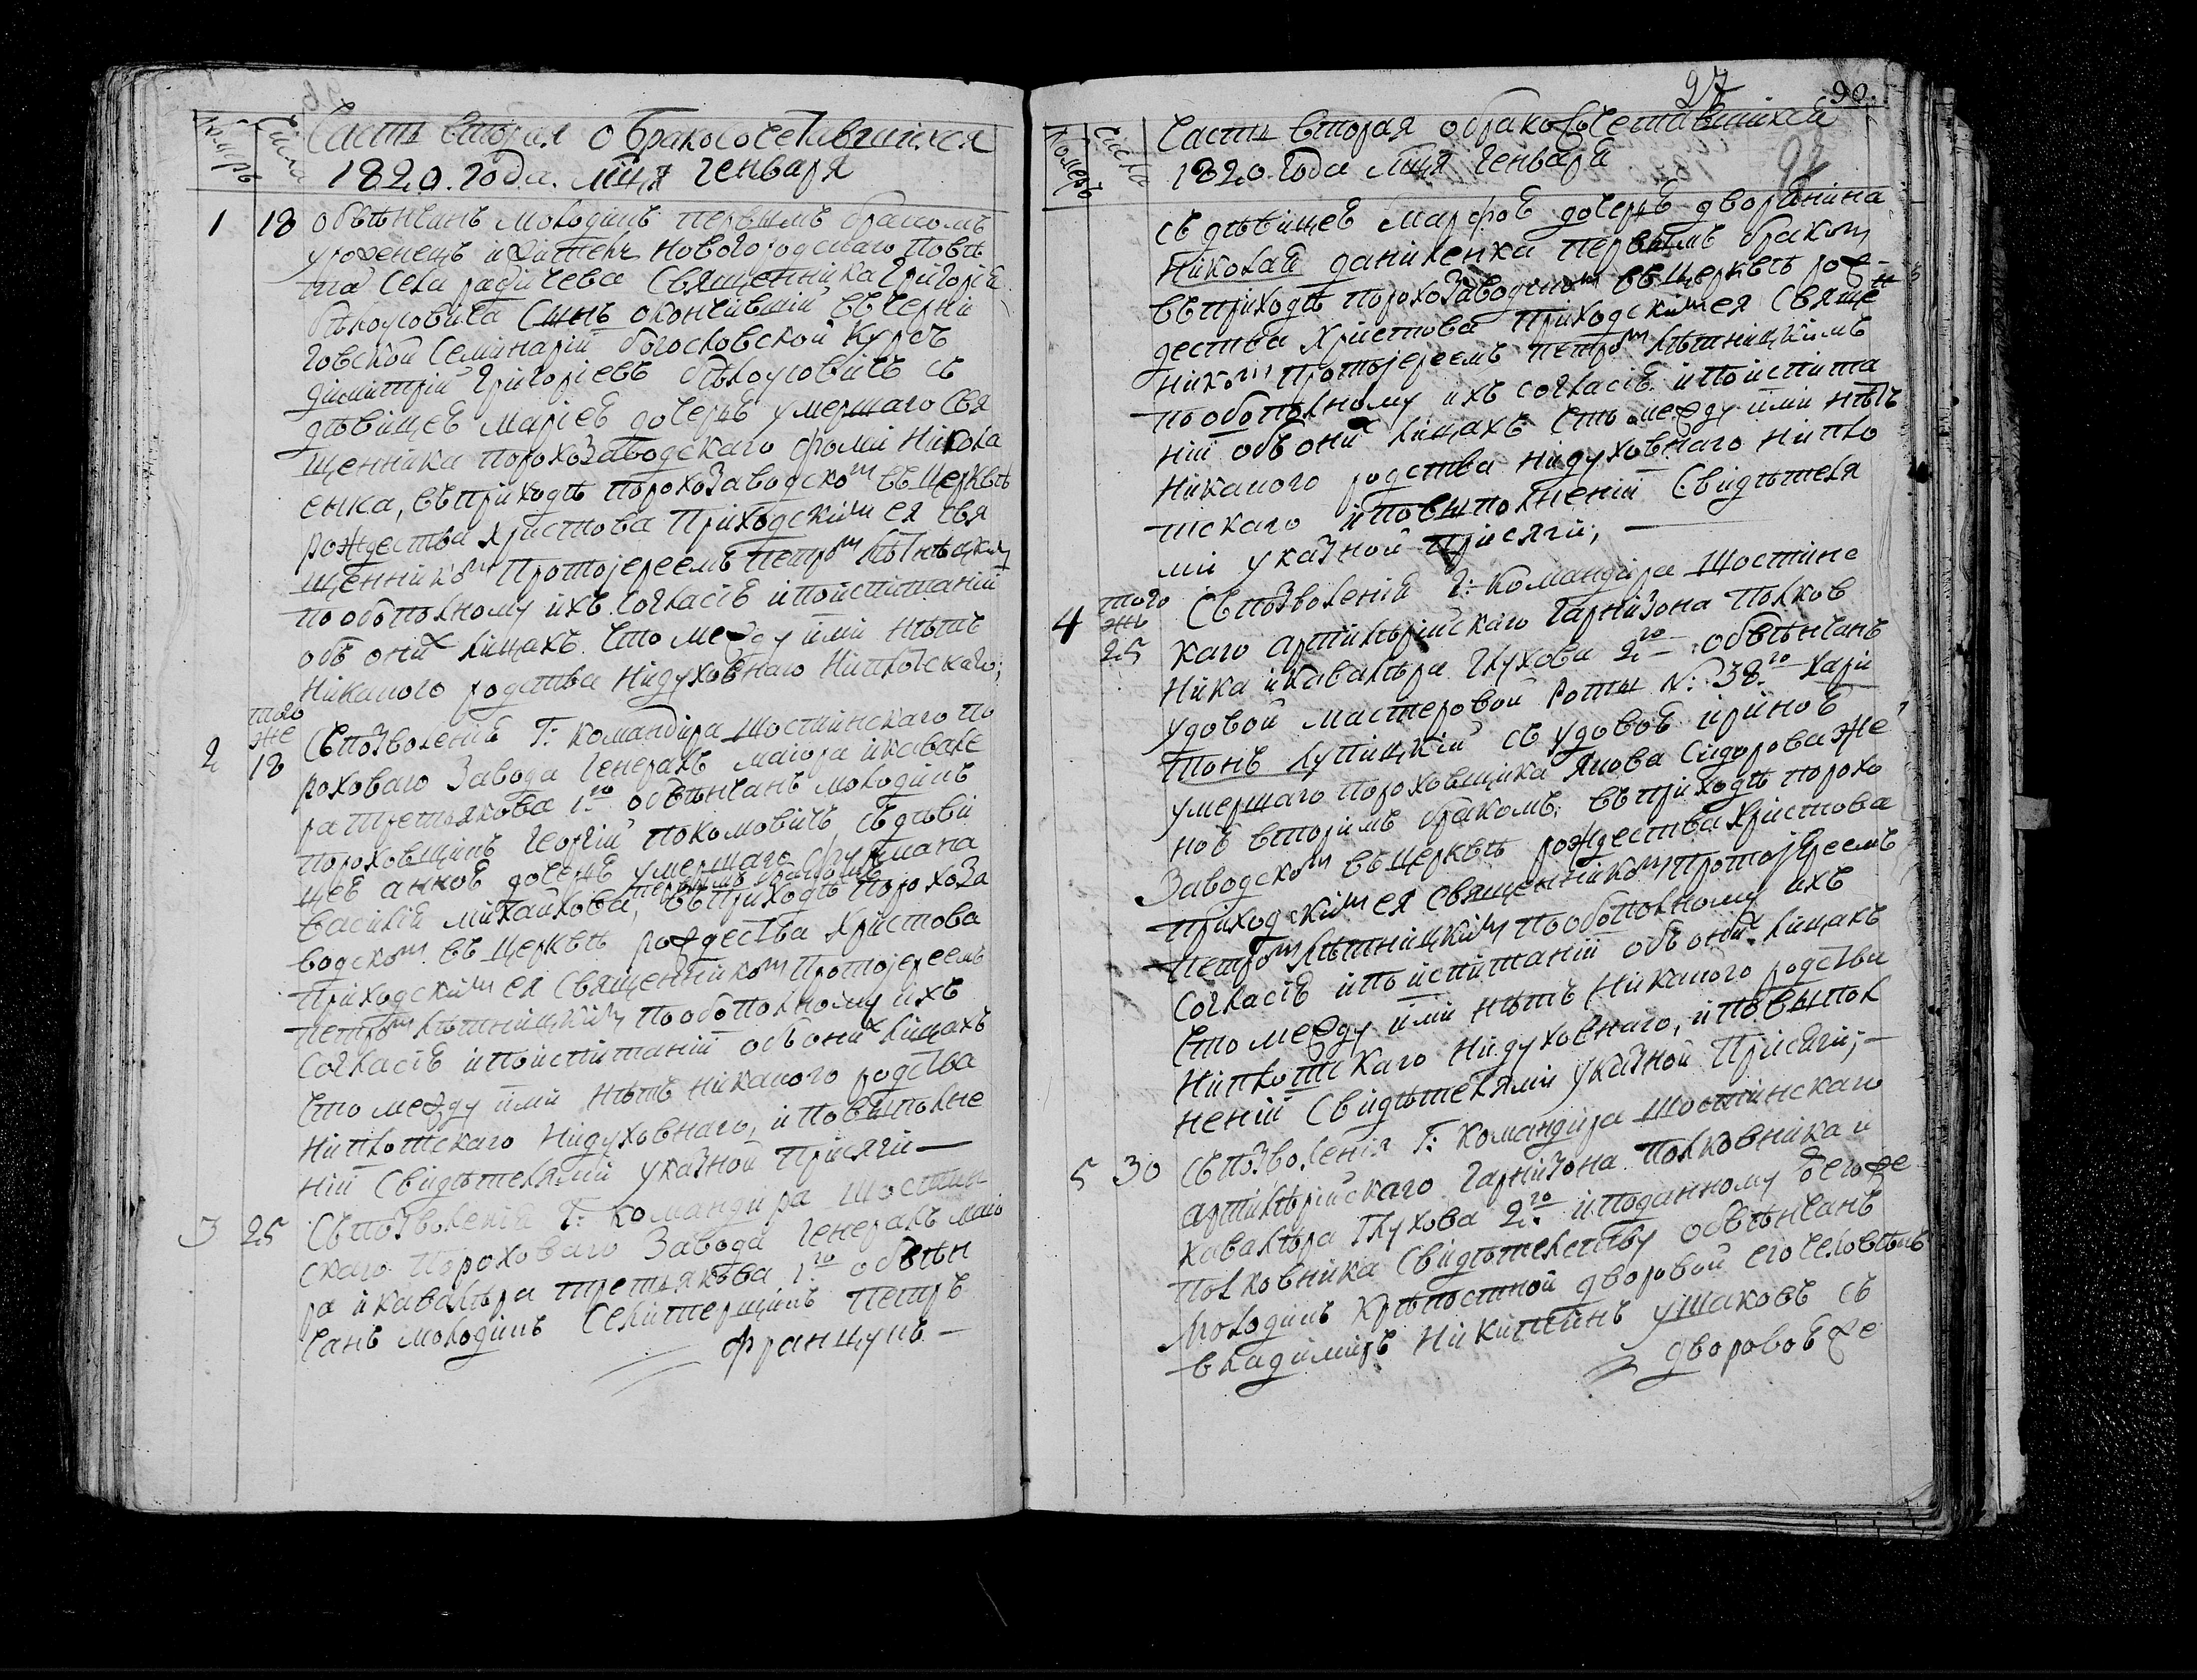 Номеръ
Числа
Часть вторая о бракосочетавшихся
1820. года. мца генваря
1 18 обвѣнчанъ молодикъ первымъ бракомъ
уроженецъ и житель новогородскаго повѣ
та села радичева Священника Григорія
бѣлоусовича Сынъ окончившій въ черни
говской Семинаріи богословской курсъ
димитрій Григоріевъ бѣлоусовичъ съ
дѣвицеѣ маріеѣ дочерѣ умершаго Свя
щенника порохозаводскаго фомы Никола
енка, въ приходѣ порохозаводском въ церквѣ
рождества Христова приходским ея свя
щенником протоіереемъ петром лѣтницким
по обопольному ихъ согласіѣ и по испитаніи
объ оних лицахъ что между ими нѣтъ
никакого родства ни духовнаго ни плотскаго;
того
же
2 18 Съ позволеніѣ г: командира шостинскаго по
роховаго завода генералъ маіора и кавале
ра третьякова 1го обвѣнчанъ молодикъ
пороховщикъ георгій покомовичъ, съ дѣви
цеѣ анноѣ дочерѣ умершаго фурмана
первымъ бракомъ
василія михайлова, въ приходѣ порохоза
водском въ церквѣ рождества Христова
приходским ея Священником протоіереемъ
петром лѣтницким по обопольному ихъ
согласіѣ и по испитаніи объ оних лицахъ
что между ими нѣтъ никакого родства
ни плотскаго ни духовнаго, и по выполне
ніи Свидѣтелями указной присяги —
3 25 Съ позволенія г: командира шостин
скаго пороховаго завода генералъ маіо
ра и кавалѣра третьякова 1го обвѣн
чанъ молодикъ Селитерщикъ петръ
францукъ —
97
90.
Номеръ
Числа
Часть вторая о бракосочетавшихся
1820 года мца генваря
съ дѣвицеѣ марфоѣ дочерѣ дворянина
николая даниленка первымъ браком
въ приходѣ порохозаводском въ церквѣ рож-
дества Христова приходским ея Священ
ником протоіереемъ петром лѣтницкимъ
по обопольному ихъ согласіѣ и по испита
ніи объ оних лицахъ что между ими нѣтъ
никакого родства ни духовнаго ни пло
тскаго и по выполненіи Свидѣтеля
ми указной присяги; —
того
же
4 25 Съ позволеніѣ г: командира шостинс
каго артилѣрійскаго гарнизона полков
ника и кавалѣра глухова 2го обвѣнчанъ
удовой мастеровой роты N: 38го хари
тонъ лупицкій съ удовоѣ ириноѣ
умершаго пороховщика якова Сидорова же
ноѣ вторимъ бракомъ: въ приходѣ порохо
заводском въ церквѣ рождества Христова
приходским ея священником протоіереемъ
петром лѣтницким по обопольному ихъ
согласіѣ и по испитаніи объ оних лицахъ
что между ими нѣтъ никакого родства
ни плотскаго ни духовнаго, и по выпол
неніи Свидѣтелями указной присяги; —
5 30 Съ позволенія г: командира шостинскаго
артилѣрійскаго гарнизона полковника и
кавалѣра глухова 2го и поданному Его же
полковника Свидѣтельству обвѣнчанъ
молодикъ крѣпостной дворовой его человѣкъ
владимиръ Никитинъ ушаковъ съ
дворовоѣ же